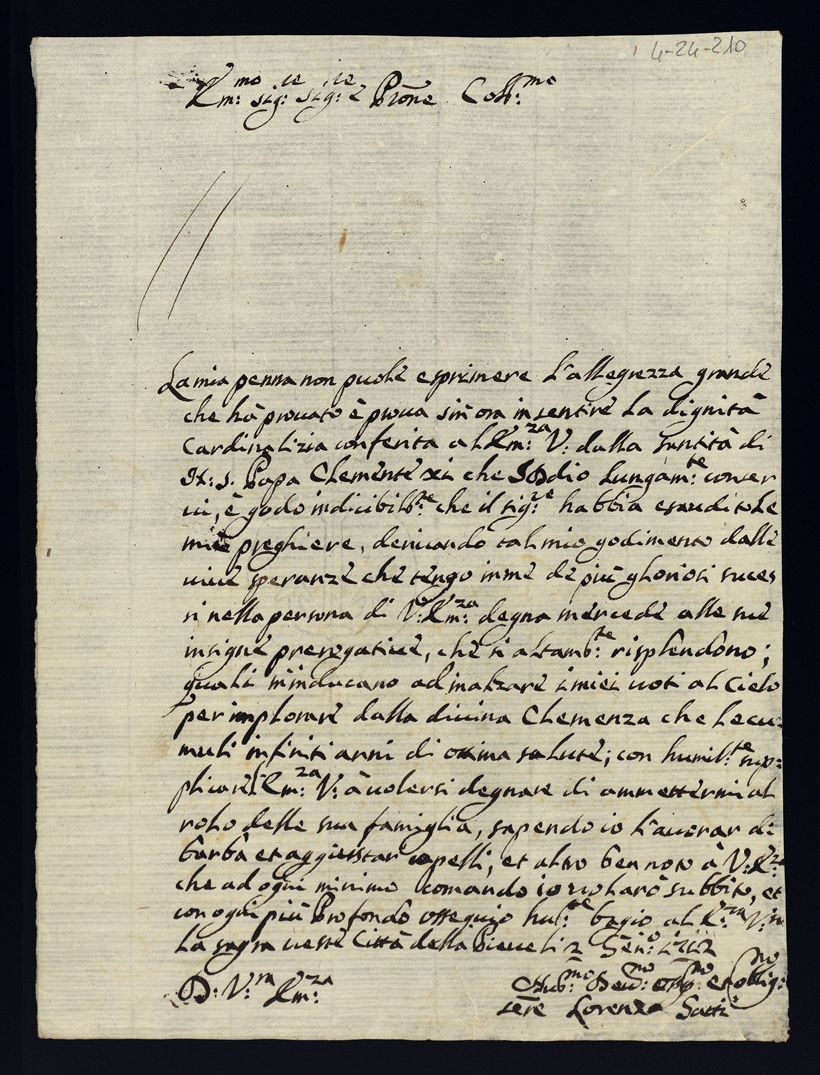 4-24-210
Em:mo sig:re sig:re è Prōne Coll:mo
La mia penna non puole esprimere l'allegrezza grande
che hà prouato è proua sin ora in sentire la dignità
Cardinalizia conferita al Em:za V: dalla santità di
N: S: Papa Clemente xi che Iddio lungam:te conser
ui, è godo indicibilm:te che il sig:re habbia esaudito le
mie preghiere, deriuando tal mio godimento dalle
uiue speranze che tengo in me de più gloriosi suces
si nella persona di V: Em:za degna mercede alle sue
insigne prerogatiue, che si altamb:te risplendono;
quali m'inducano ad inalzare i miei uoti al Cielo
per implorare dalla diuina Clemenza che le cu:
muli infiniti anni di ottima salute; con humil:te sup=
plicare l'Em:za V: à uolersi degnare di ammettermi al
rolo delle sua famiglia, sapendo io l'auorar di
barba et aggiustar capelli, et altro ben noto à V: E:za
che ad ogni minimo comando io uolarò subbito, et
con ogni più Profondo ossequio hu:te bagio al E:za V:ra
La sagra ueste Città della Pieue li 2 Gen:o 1712
D: V:ra Em:za
Hub:mo Deu:mo et oblig:mo
seruē Lorenzo